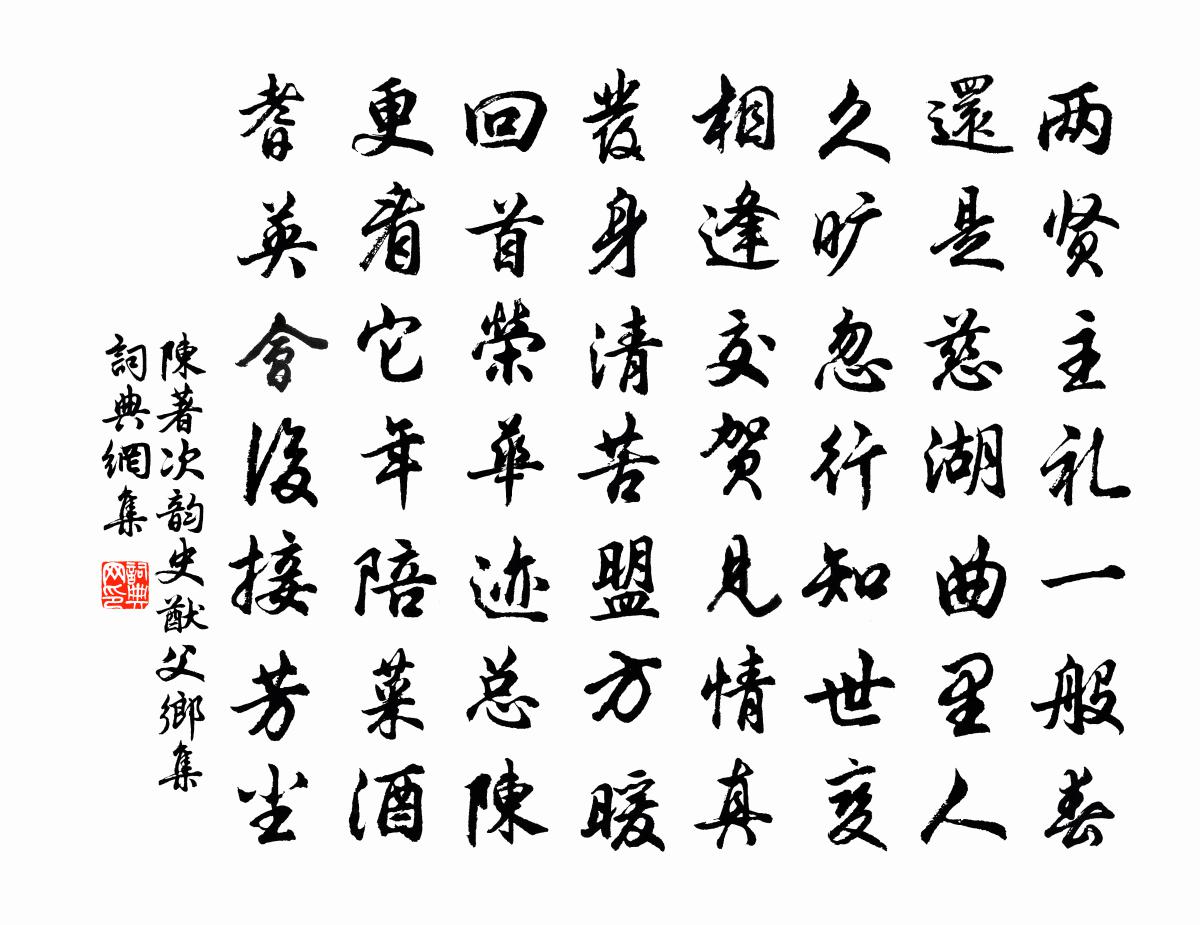 两贤主礼一般春
還是慈湖曲里人
久旷忽行知世变
相逢交贺見情真
發身清苦盟方暖
回首榮華迹总陳
更看它年陪菜酒
耆英會後接芳尘
陳著次韵史猷父鄉集
詞典網集
詞典网印